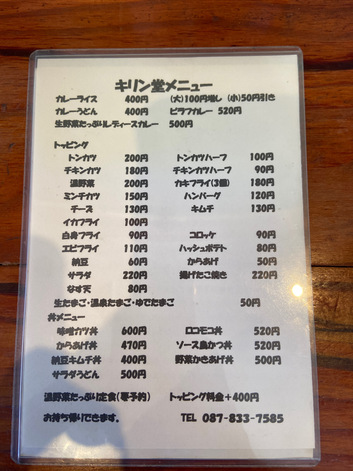 キリン堂メニュー
カレーライス 400円 (大)100円増し (小)50円引き
カレーうどん 400円 ピラフカレー 520円
生野菜たっぷりレディースカレー 500円
トッピング
トンカツ 200円 トンカツハーフ 100円
チキンカツ 180円 チキンカツハーフ 90円
温野菜 200円 カキフライ(3個) 180円
ミンチカツ 150円 ハンバーグ 120円
チーズ 130円 キムチ 130円
イカフライ 100円
白身フライ 90円 コロッケ 90円
エビフライ 110円 ハッシュポテト 80円
納豆 60円 からあげ 50円
サラダ 220円 揚げたこ焼き 220円
なす天 80円
生たまご・温泉たまご・ゆでたまご 50円
丼メニュー
味噌カツ丼 600円 ロコモコ丼 520円
からあげ丼 470円 ソース鳥かつ丼 520円
納豆キムチ丼 400円 野菜かきあげ丼 500円
サラダうどん 500円
温野菜たっぷり定食(要予約) トッピング料金+400円
お持ち帰りできます。 TEL 087-833-7585